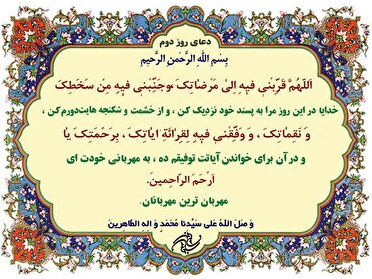 دعای روز دوم
بِسْمِ اللهِ الرَّحْمنِ الرَّحیمِ
اَللّهُمَّ قَرِّبْنی فیهِ اِلی مَرْضاتِکَ ،وجَنِّبْنی فیهِ مِن سَخَطِکَ
خدایا در این روز مرا به پسند خود نزدیک کن ، و از خشمت و شکنجه هایت‌دورم‌کن ،
وَ نَقِماتِکَ ، وَ وَفِّقْنی فیهِ لِقِرائَةِ ایاتِکَ ، بِرَحْمَتِکَ یا
و در آن برای خواندن آیاتت توفیقم ده ، به مهربانی خودت ای
اَرْحَمَ الرّاحِمینَ.
مهربان ترین مهربانان.
وَ صَلَّ اللهُ عَلی سَیِّدِنا مُحَمَّدٍ وَ الِهِ الطّاهِرینَ